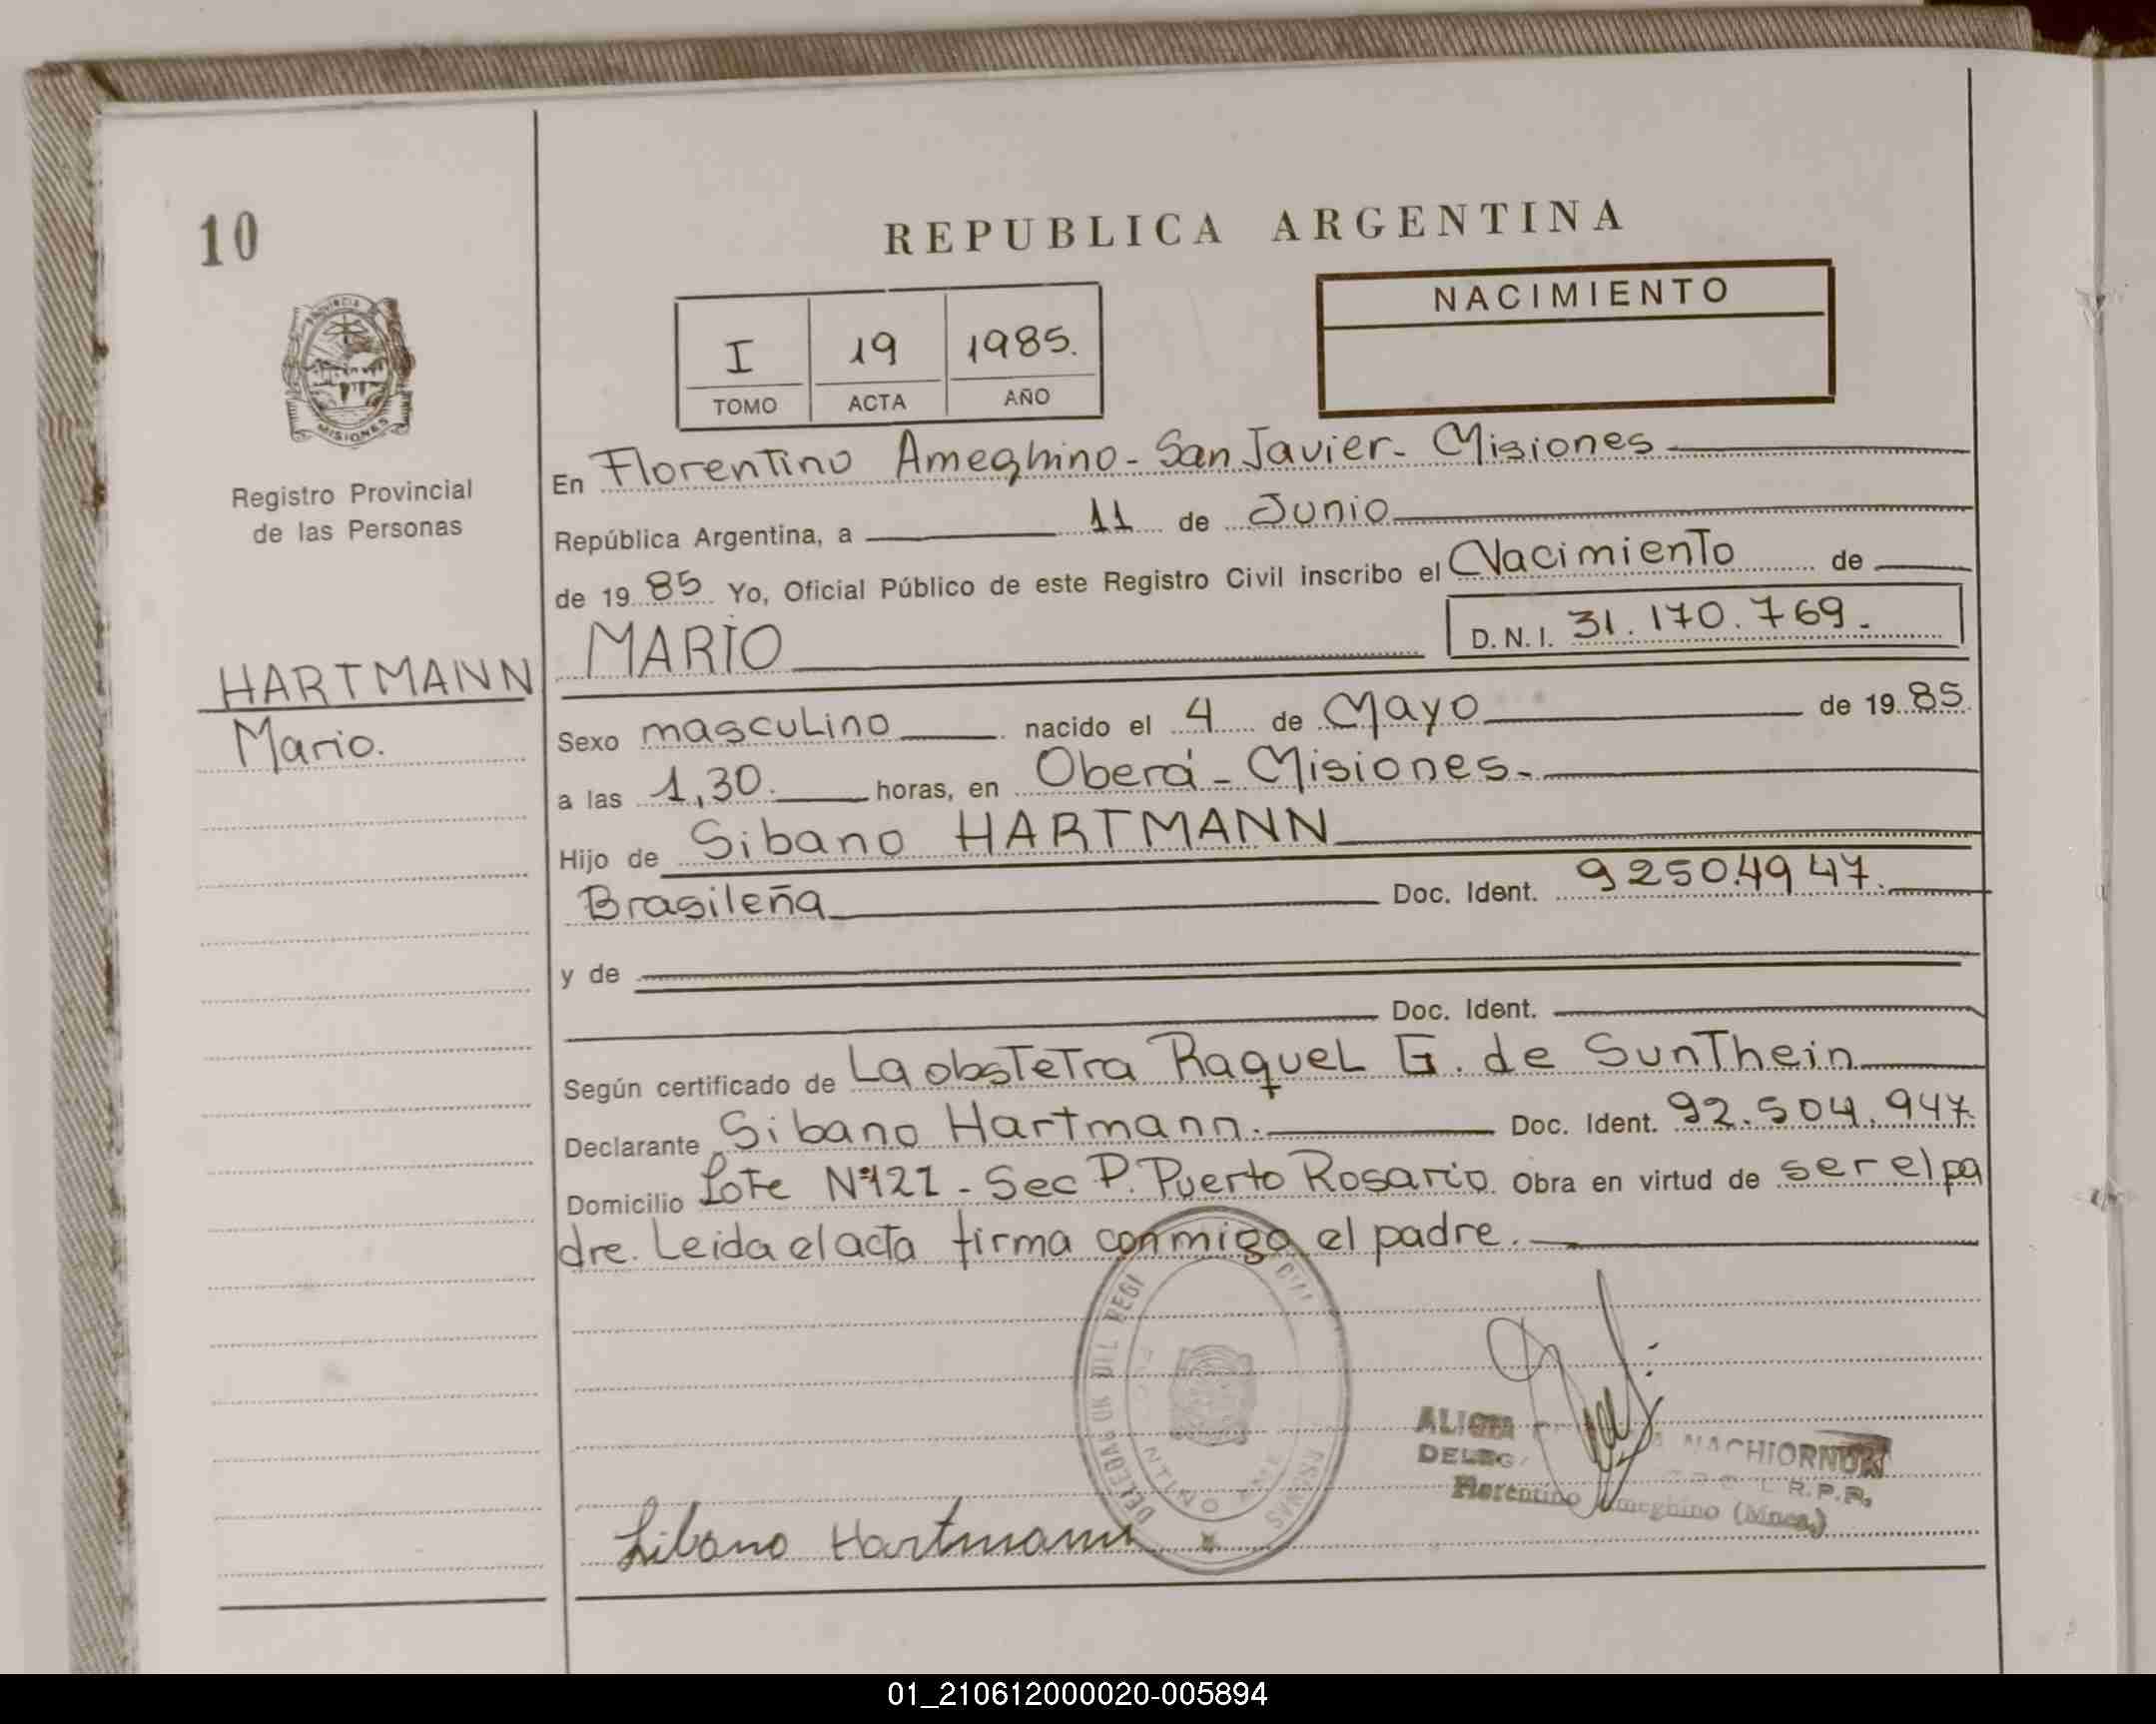 10
REPUBLICA ARGENTINA
NACIMIENTO
I 19 1985.
TOMO ACTA AÑO
PROVINCIA
MISIONES
Registro Provincial
de las Personas
En Florentino Ameghino - San Javier - Misiones
República Argentina, a 11 de Junio
de 19 85 Yo, Oficial Público de este Registro Civil inscribo el Nacimiento de
MARIO D.N.I. 31.170.769.
HARTMANN
Mario.
Sexo masculino nacido el 4 de Mayo de 19 85
a las 1,30. horas, en Oberá - Misiones -
Hijo de Sibano HARTMANN
Brasileña Doc. Ident. 9250.49 47.
y de
Doc. Ident.
Según certificado de La obstetra Raquel G. de Sunthein
Declarante Sibano Hartmann. Doc. Ident. 92.504.947.
Domicilio Lote Nº121 - Sec P. Puerto Rosario Obra en virtud de ser el pa
dre. Leida el acta firma conmigo el padre.
ALICIA NACHIORNUK
DELEG R.P.P.
Florentino Ameghino (Mnes.)
Sibano Hartmann
01_210612000020-005894